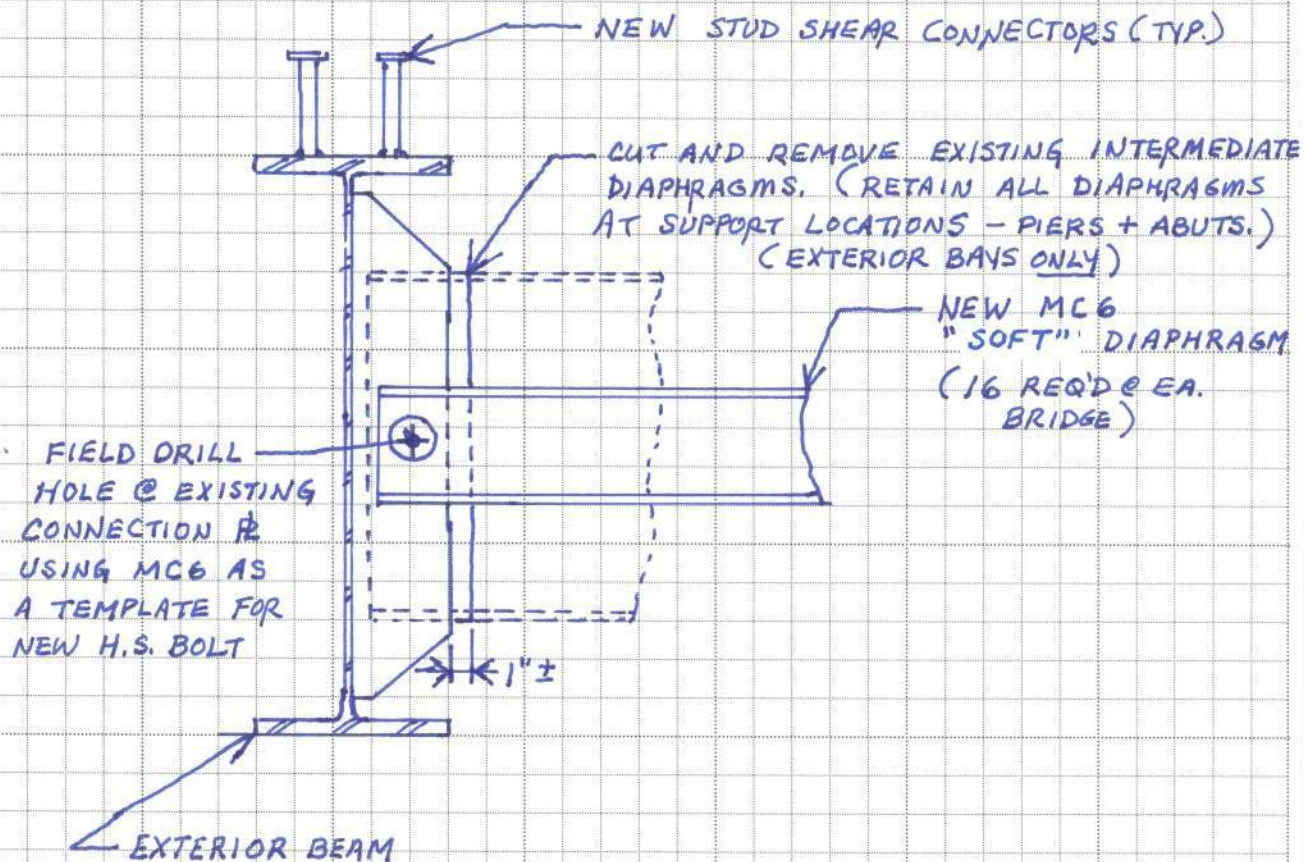 NEW STUD SHEAR CONNECTORS (TYP.)
CUT AND REMOVE EXISTING INTERMEDIATE
DIAPHRAGMS. (RETAIN ALL DIAPHRAGMS
AT SUPPORT LOCATIONS - PIERS + ABUTS.)
(EXTERIOR BAYS ONLY)
NEW MC6
"SOFT" DIAPHRAGM
(16 REQ'D @ EA.
BRIDGE)
FIELD DRILL
HOLE @ EXISTING
CONNECTION PL
USING MC6 AS
A TEMPLATE FOR
NEW H.S. BOLT
1" ±
EXTERIOR BEAM